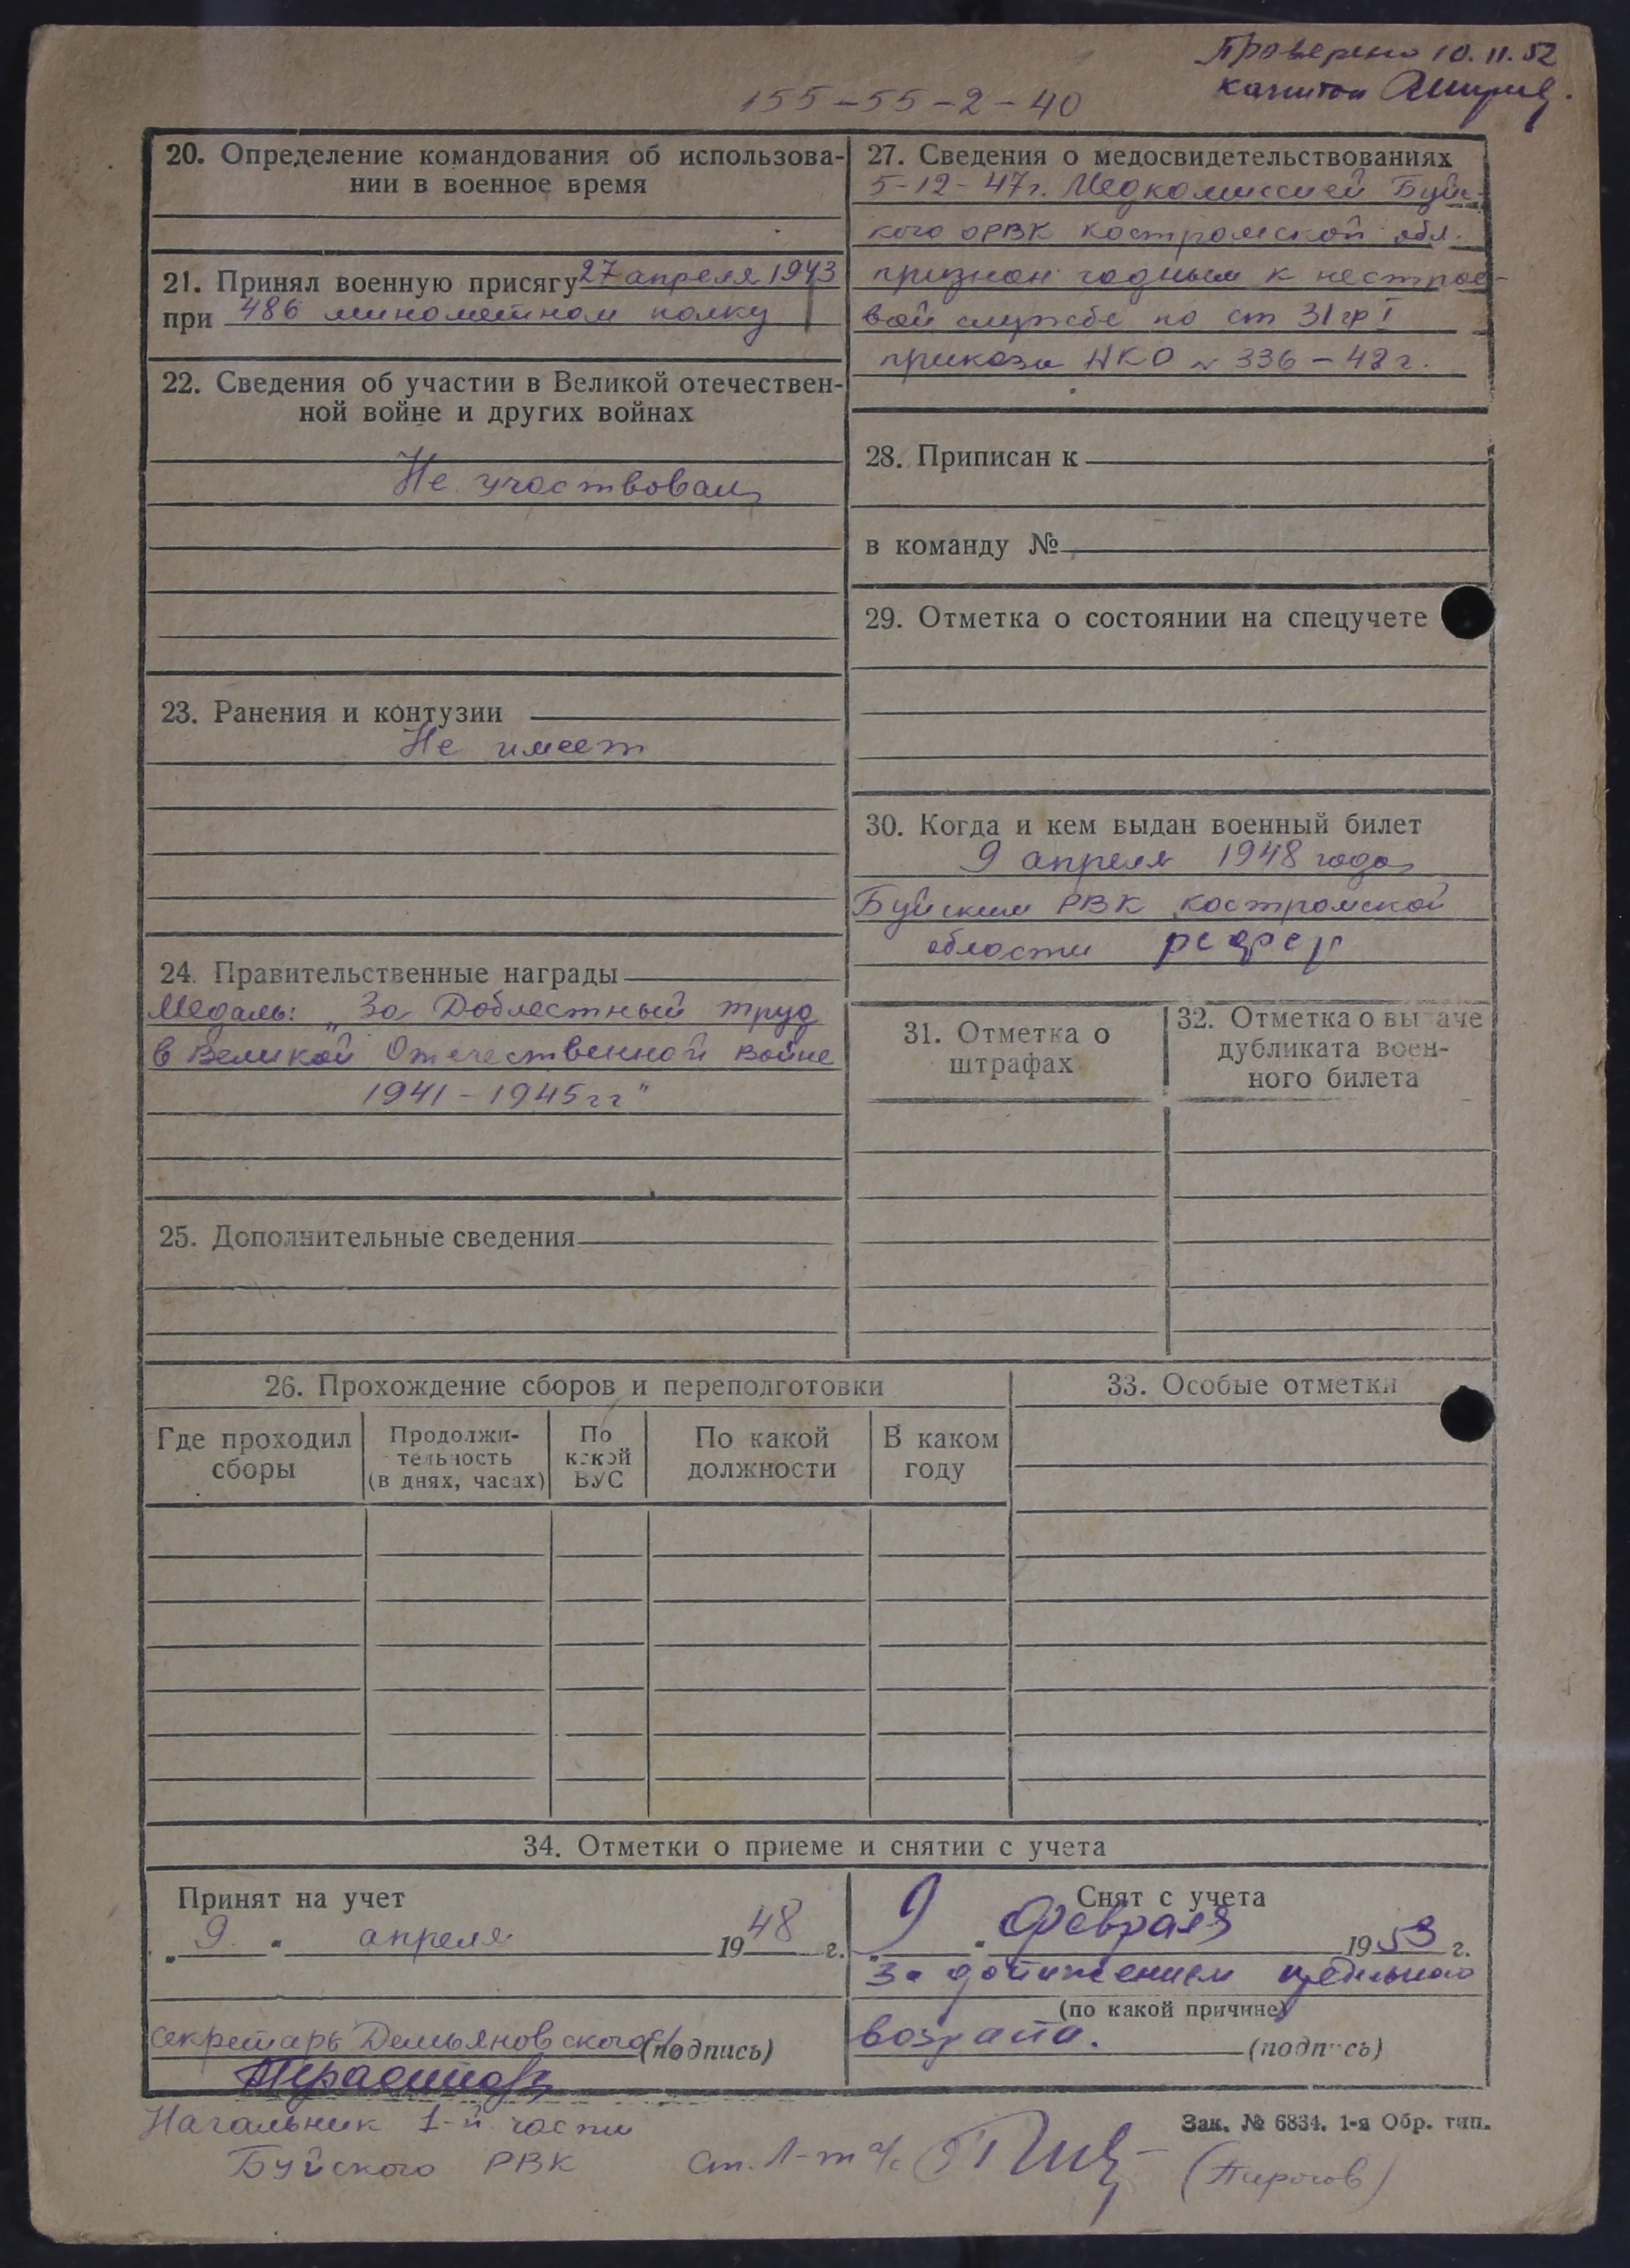 Проверено 10.11.52
капитан
155-55-2-40
20. Определение командования об использова-
нии в военное время
21. Принял военную присягу 27 апреля 1943
при 486 минометном полку
22. Сведения об участии в Великой отечествен-
ной войне и других войнах
Не участвовал
23. Ранения и контузии
Не имеет
24. Правительственные награды
Медаль: „За Доблестный труд
в Великой Отечественной войне
1941-1945гг"
25. Дополнительные сведения
27. Сведения о медосвидетельствованиях
5-12-47г. Медкомиссией Буйс-
кого ОРВК Костромской обл.
признан годным к нестрое-
вой службе по ст 31 гр I
приказа НКО № 336-42г.
28. Приписан к
в команду №
29. Отметка о состоянии на спецучете
30. Когда и кем выдан военный билет
9 апреля 1948 года
Буйским РВК Костромской
области
31. Отметка о
штрафах
32. Отметка о выдаче
дубликата воен-
ного билета
26. Прохождение сборов и переподготовки
Где проходил
сборы
Продолжи-
тельность
(в днях, часах)
По
какой
ВУС
По какой
должности
В каком
году
33. Особые отметки
34. Отметки о приеме и снятии с учета
Принят на учет
„9" апреля 1948 г.
секретарь Демьяновского с/с
(подпись)
Снят с учета
„9" февраля 1953 г.
За достижением предельного
(по какой причине)
возраста.
(подпись)
Начальник 1-й части
Буйского РВК ст. л-т а/с (Пирогов)
Зак. № 6834. 1-я Обр. тип.